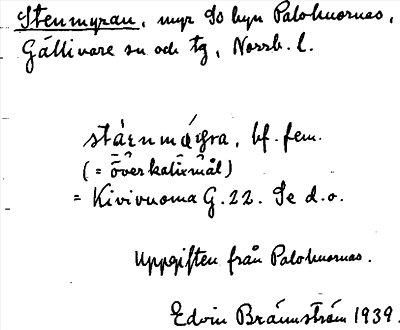 Stenmyran, myr So byn Palohuornas,
Gällivare sn och tg, Norrb. l.
bf. fem.
(= överkalixmål)
= Kivivuoma G. 22. Se d. o.
Uppgiften från Palohuornas.
Edvin Brännström 1939.